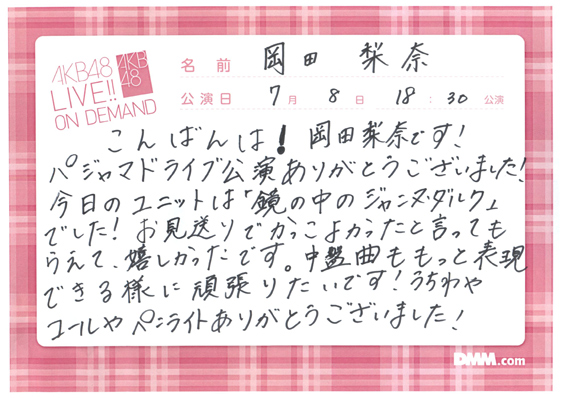 AKB48
LIVE!!
ON DEMAND
AKB
48
名前 岡田 梨奈
公演日 7月 8日 18:30 公演
こんばんは！岡田梨奈です！
パジャマドライブ公演ありがとうございました！
今日のユニットは「鏡の中のジャンヌ・ダルク」
でした！お見送りでかっこよかったと言っても
らえて、嬉しかったです。中盤曲ももっと表現
できる様に頑張りたいです！うちわや
コールやペンライトありがとうございました！
DMM.com